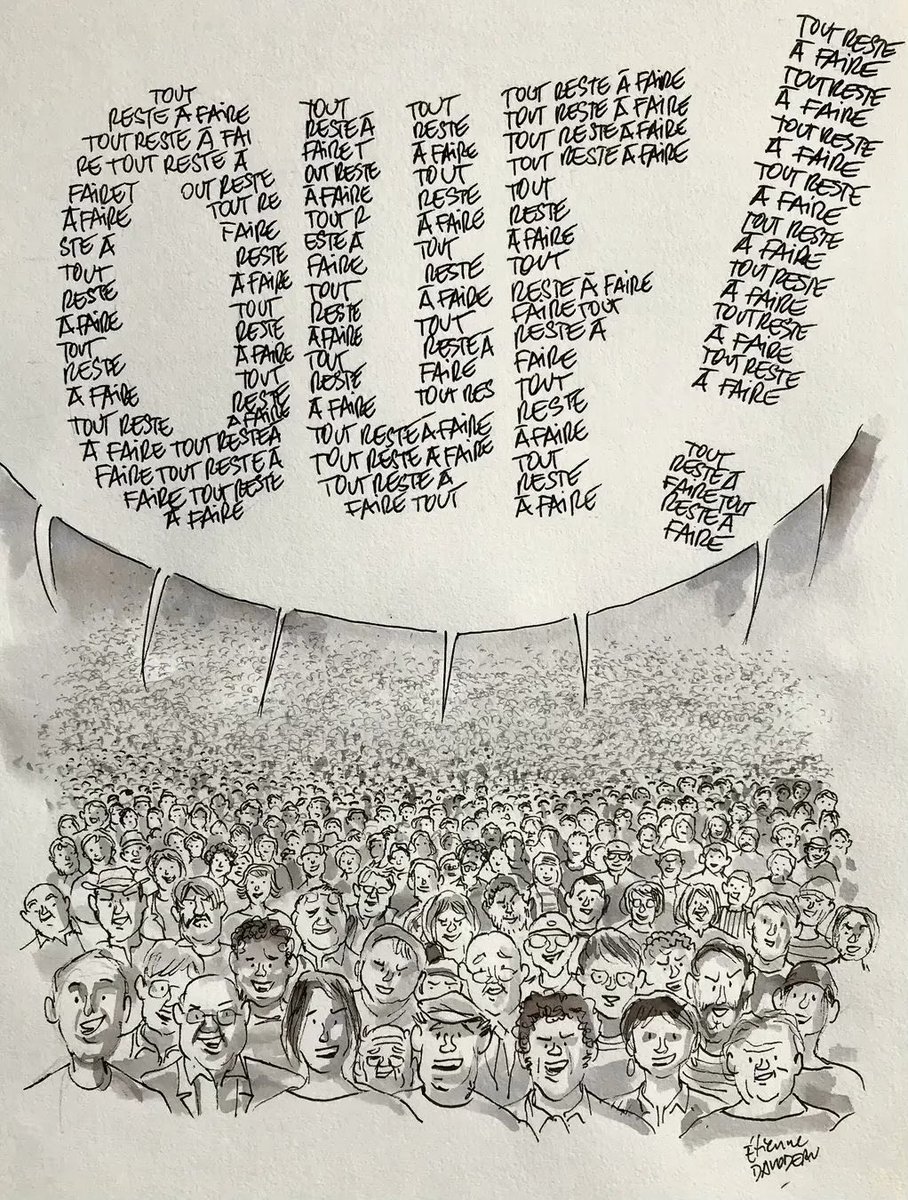 TOUT
RESTE À FAIRE
TOUT RESTE À FAI
RE TOUT RESTE À
FAIRE T OUT RESTE
À FAIRE TOUT RE
STE À FAIRE
TOUT RESTE
RESTE À FAIRE
À FAIRE TOUT
TOUT RESTE
RESTE À FAIRE
À FAIRE TOUT
RESTE
TOUT RESTE À FAIRE
À FAIRE TOUT RESTE À
FAIRE TOUT RESTE À
FAIRE TOUT RESTE
À FAIRE
TOUT TOUT
RESTE À RESTE
FAIRE T À FAIRE
OUT RESTE TOUT
À FAIRE RESTE
TOUT R À FAIRE
ESTE À TOUT
FAIRE RESTE
TOUT À FAIRE
RESTE TOUT
À FAIRE RESTE À
TOUT FAIRE
RESTE TOUT RES
À FAIRE
TOUT RESTE À FAIRE
TOUT RESTE À FAIRE
TOUT RESTE À
FAIRE TOUT
TOUT RESTE À FAIRE
TOUT RESTE À FAIRE
TOUT RESTE À FAIRE
TOUT RESTE À FAIRE
TOUT
RESTE
À FAIRE
TOUT
RESTE À FAIRE
FAIRE TOUT
RESTE À
FAIRE
TOUT
RESTE
À FAIRE
TOUT
RESTE
À FAIRE
TOUT RESTE
À FAIRE
TOUT RESTE
À FAIRE
TOUT RESTE
À FAIRE
TOUT RESTE
À FAIRE
TOUT RESTE
À FAIRE
TOUT RESTE
À FAIRE
TOUT RESTE
À FAIRE
TOUT RESTE
À FAIRE
TOUT
RESTE À
FAIRE TOUT
RESTE À
FAIRE
Étienne
DAVODEAU